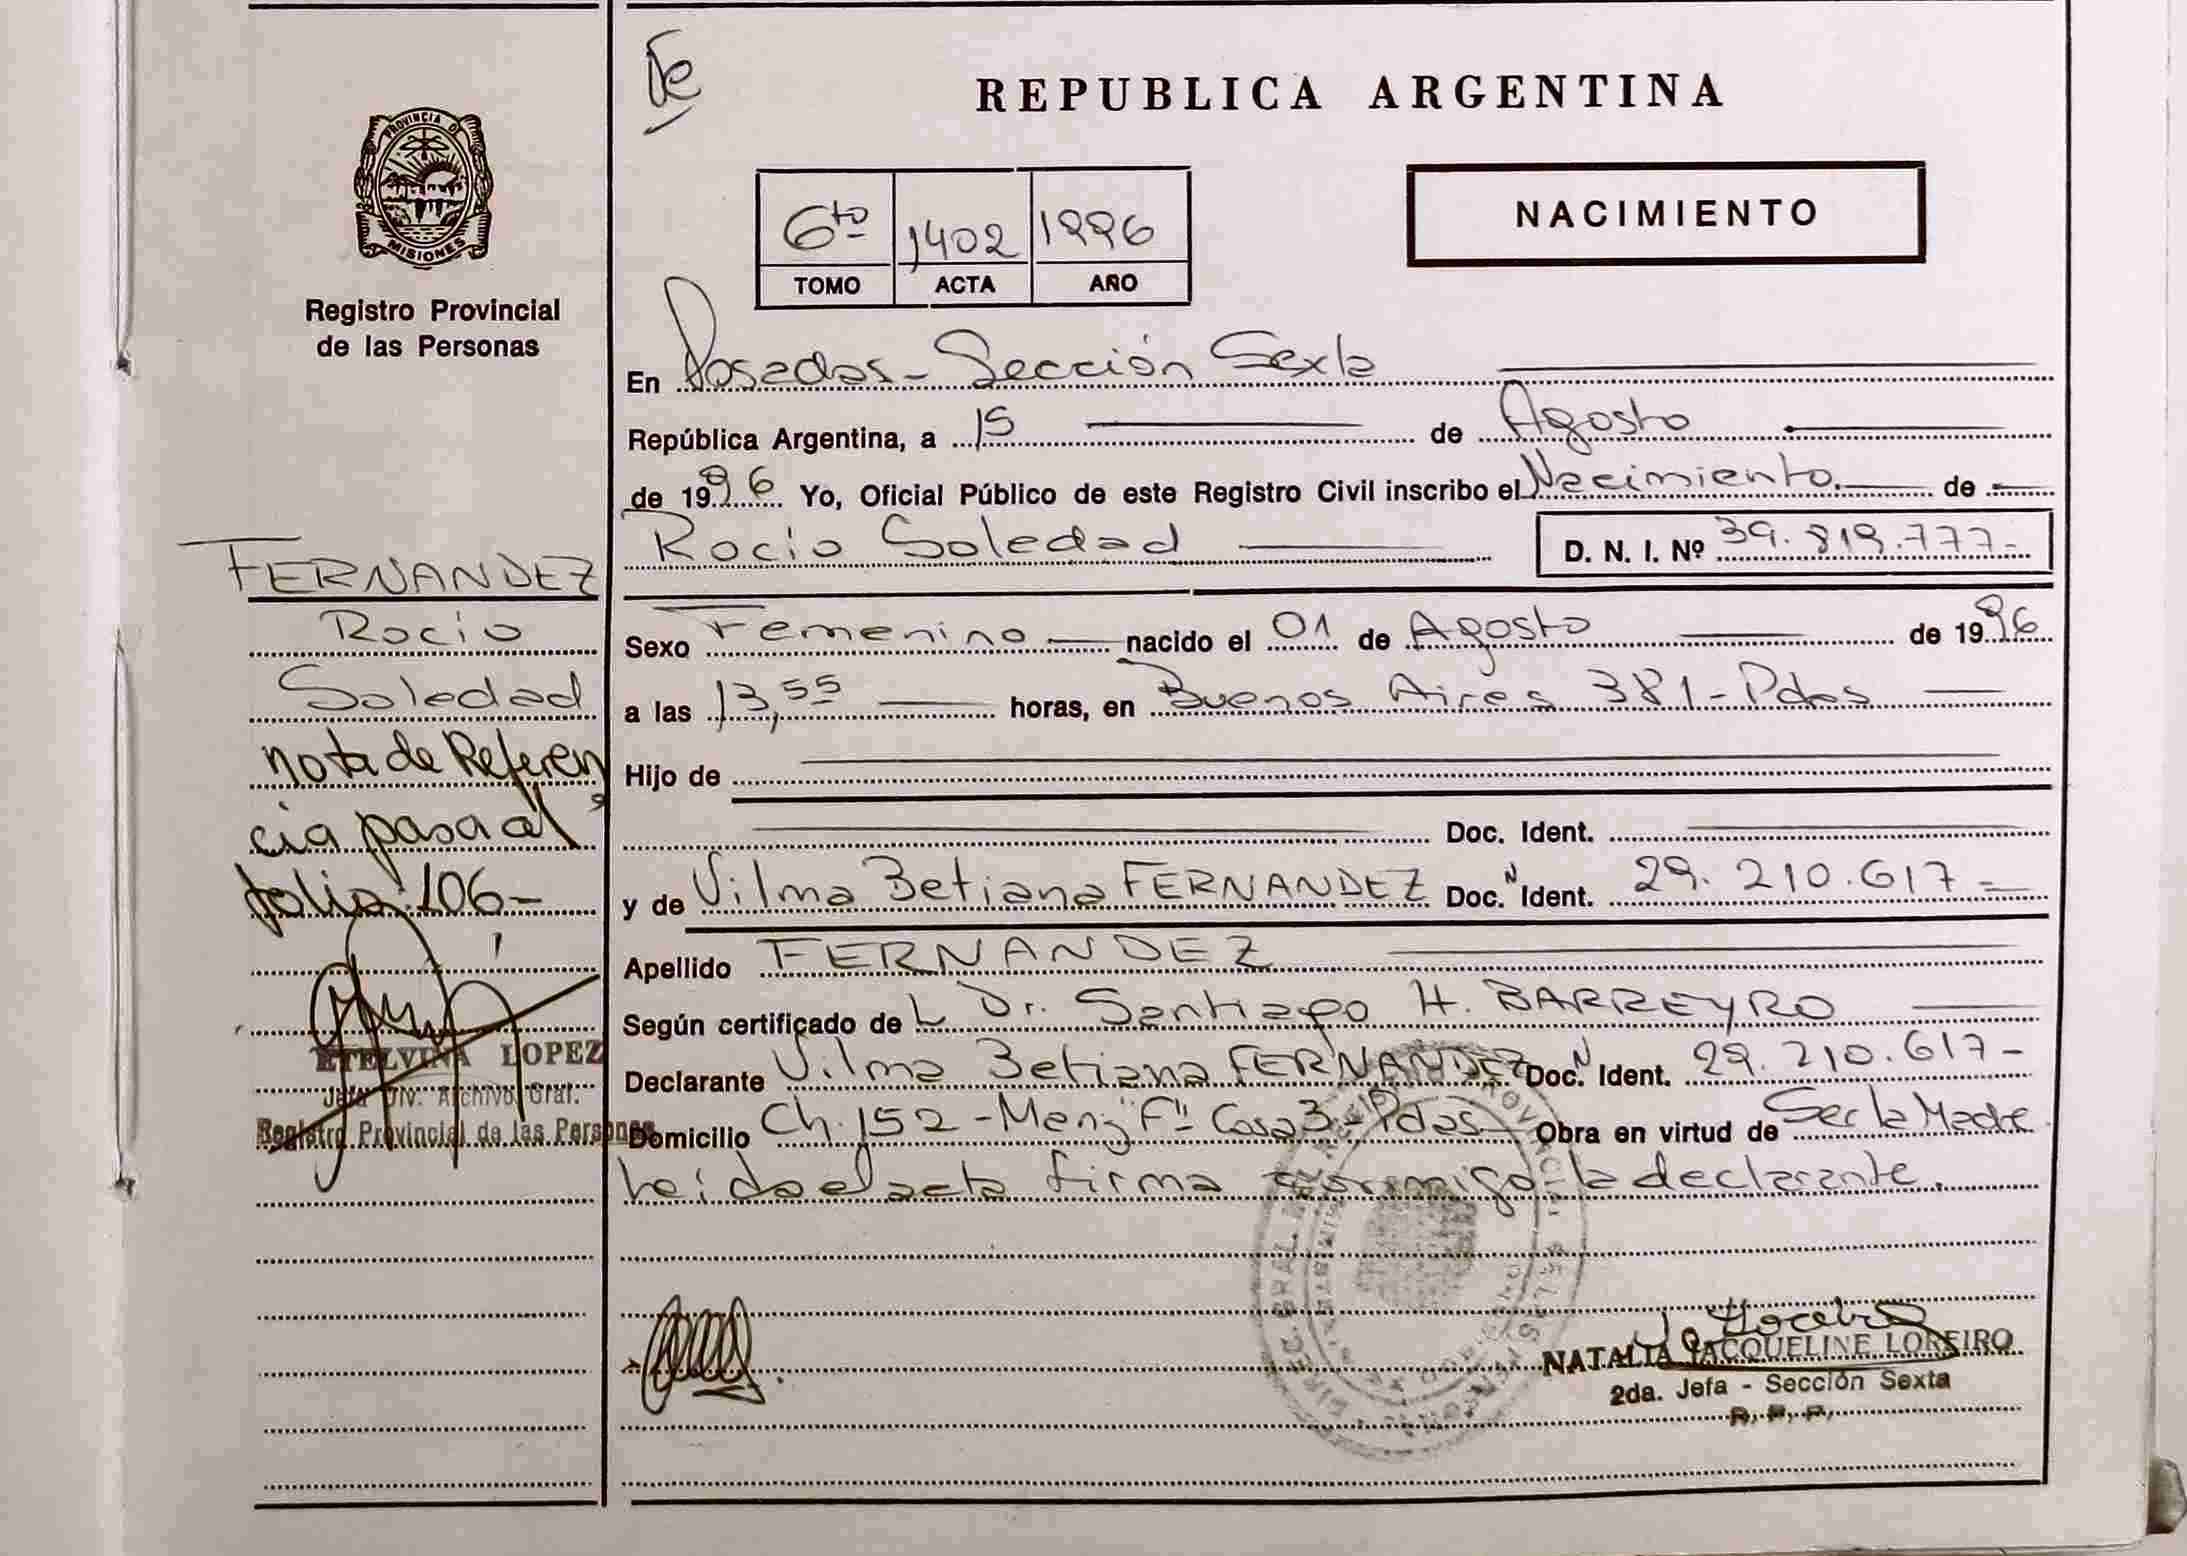 Te
REPUBLICA ARGENTINA
PROVINCIA DE
MISIONES
Registro Provincial
de las Personas
6to 1402 1996
TOMO ACTA AÑO
NACIMIENTO
En Posadas - Sección Sexta
República Argentina, a 15 de Agosto
de 1996 Yo, Oficial Público de este Registro Civil inscribo el Nacimiento. de
Rocio Soledad D. N. I. Nº 39.819.777-
FERNANDEZ
Rocio
Soledad
nota de Referen
cia pasa al
folio: 106-
ETELVINA LOPEZ
Jefa Div. Archivo Gral.
Registro Provincial de las Personas
Sexo Femenino nacido el 01 de Agosto de 1996
a las 13,55 horas, en Buenos Aires 381 - Pdas
Hijo de
Doc. Ident.
y de Vilma Betiana FERNANDEZ Doc. N Ident. 29.210.617-
Apellido FERNANDEZ
Según certificado de L Dr. Santiago H. BARREYRO
Declarante Vilma Betiana FERNANDEZ Doc. N Ident. 29.210.617-
Domicilio Ch. 152 - Manz "F" Casa 3 - Pdas - Obra en virtud de Ser la Madre
Leida el acta firma conmigo la declarante.
NATALIA JACQUELINE LOREIRO
2da. Jefa - Sección Sexta
R. P. P.